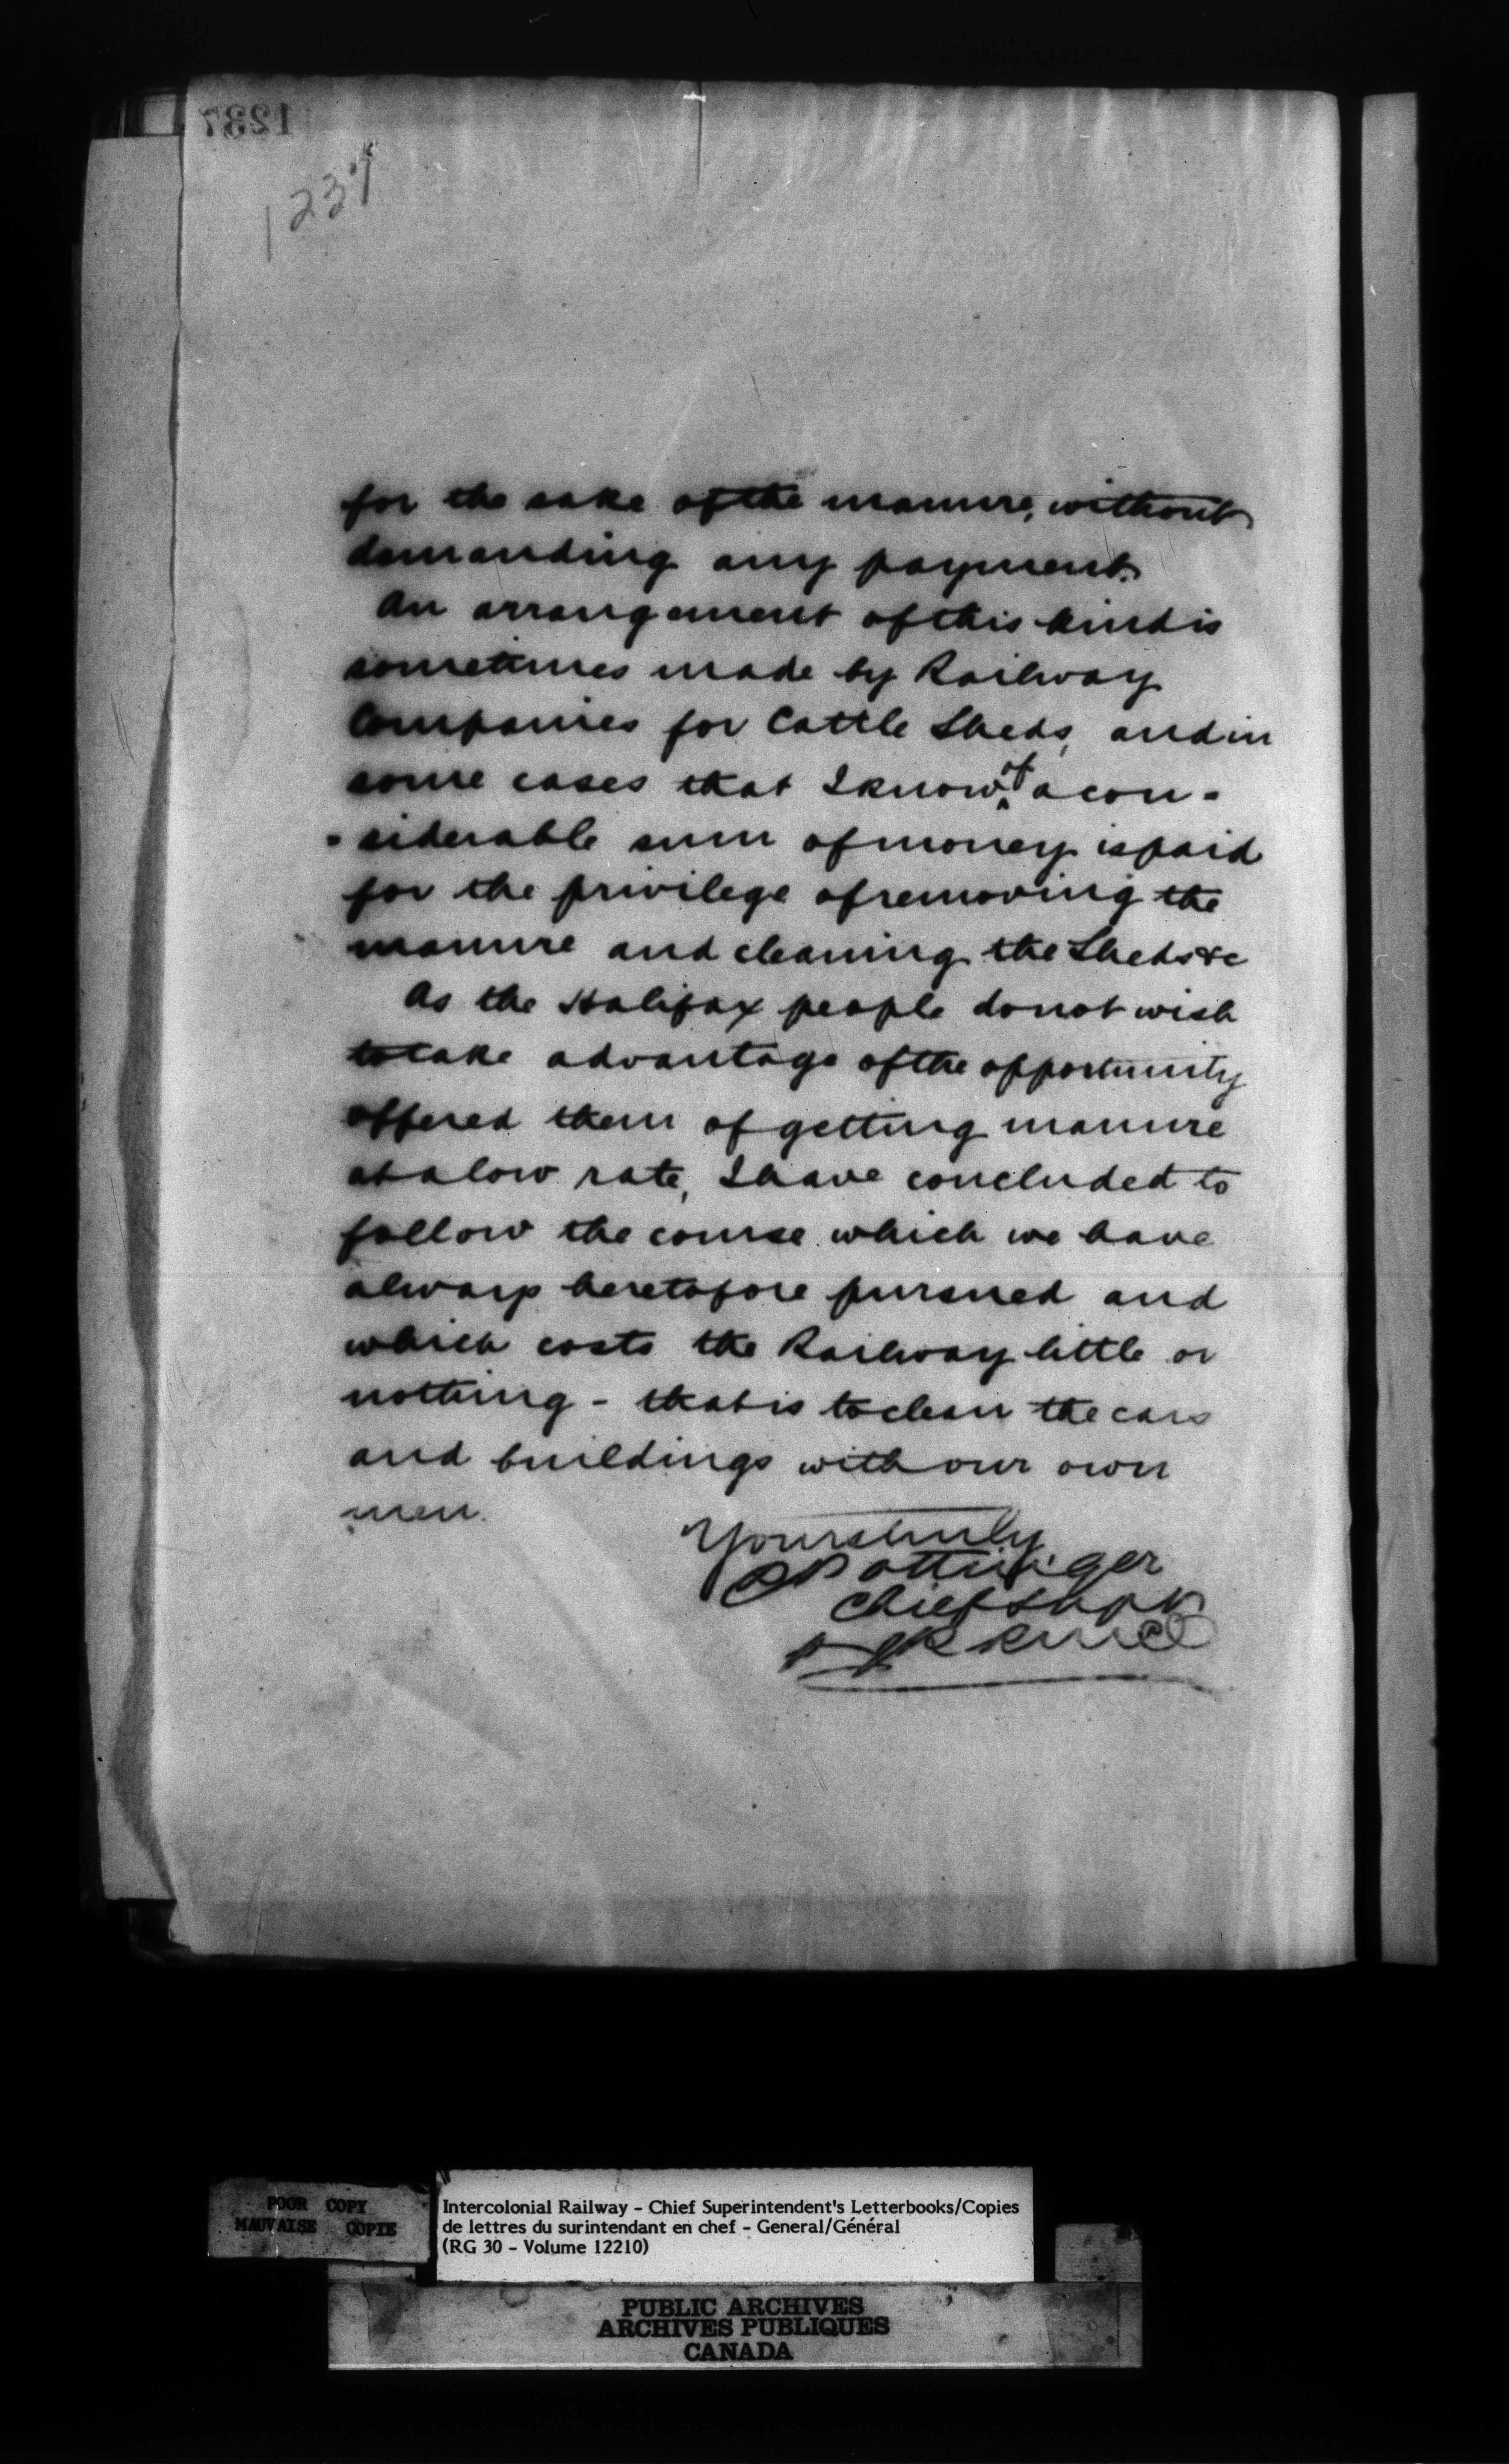 1237
1237
for the sake of the manure, without
demanding any payment.
An arrangement of this kind is
sometimes made by Railway
Companies for Cattle Sheds, and in
some cases that I know of a con-
-siderable sum of money is paid
for the privilege of removing the
manure and cleaning the Sheds &c
As the Halifax people do not wish
to take advantage of the opportunity
offered them of getting manure
at a low rate, I have concluded to
follow the course which we have
always heretofore pursued and
which costs the Railway little or
nothing - that is to clean the cars
and buildings with our own
men.
Yours truly
D Pottinger
Chief Supt
POOR COPY
MAUVAISE COPIE
Intercolonial Railway - Chief Superintendent's Letterbooks/Copies
de lettres du surintendant en chef - General/Général
(RG 30 - Volume 12210)
PUBLIC ARCHIVES
ARCHIVES PUBLIQUES
CANADA